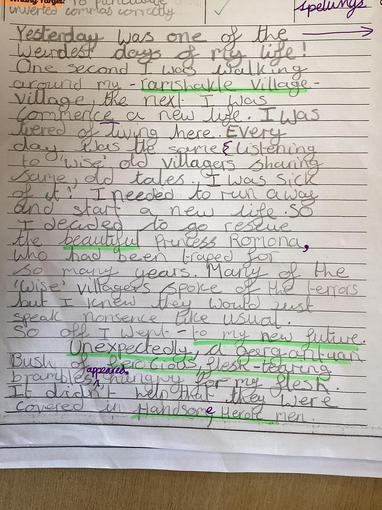 To punctuate
inverted commas correctly
spelungs
Yesterday was one of the
weirdest days of my life!
One second I was walking
around my - ramshakle village -
village, the next I was
commence a new life. I was
tiered of living here. Every
day was the same & listening
to 'wise' old villagers sharing
same, old tales. I was sick
of it! I needed to run away
and start a new life. So
I decided to go rescue
the beautiful Princess Romona,
who had been traped for
so many years. Many of the
'wise' villagers spoke of the terrors
but I knew they would just
speak nonsense like usual.
So off I went - to my new future.
Unexpectedly, a gargantuan
Bush of ferocious, flesh-tearing
brambles appeared hungry for my flesh.
It didn't help that they were
covered in Handsome, Heroic men.